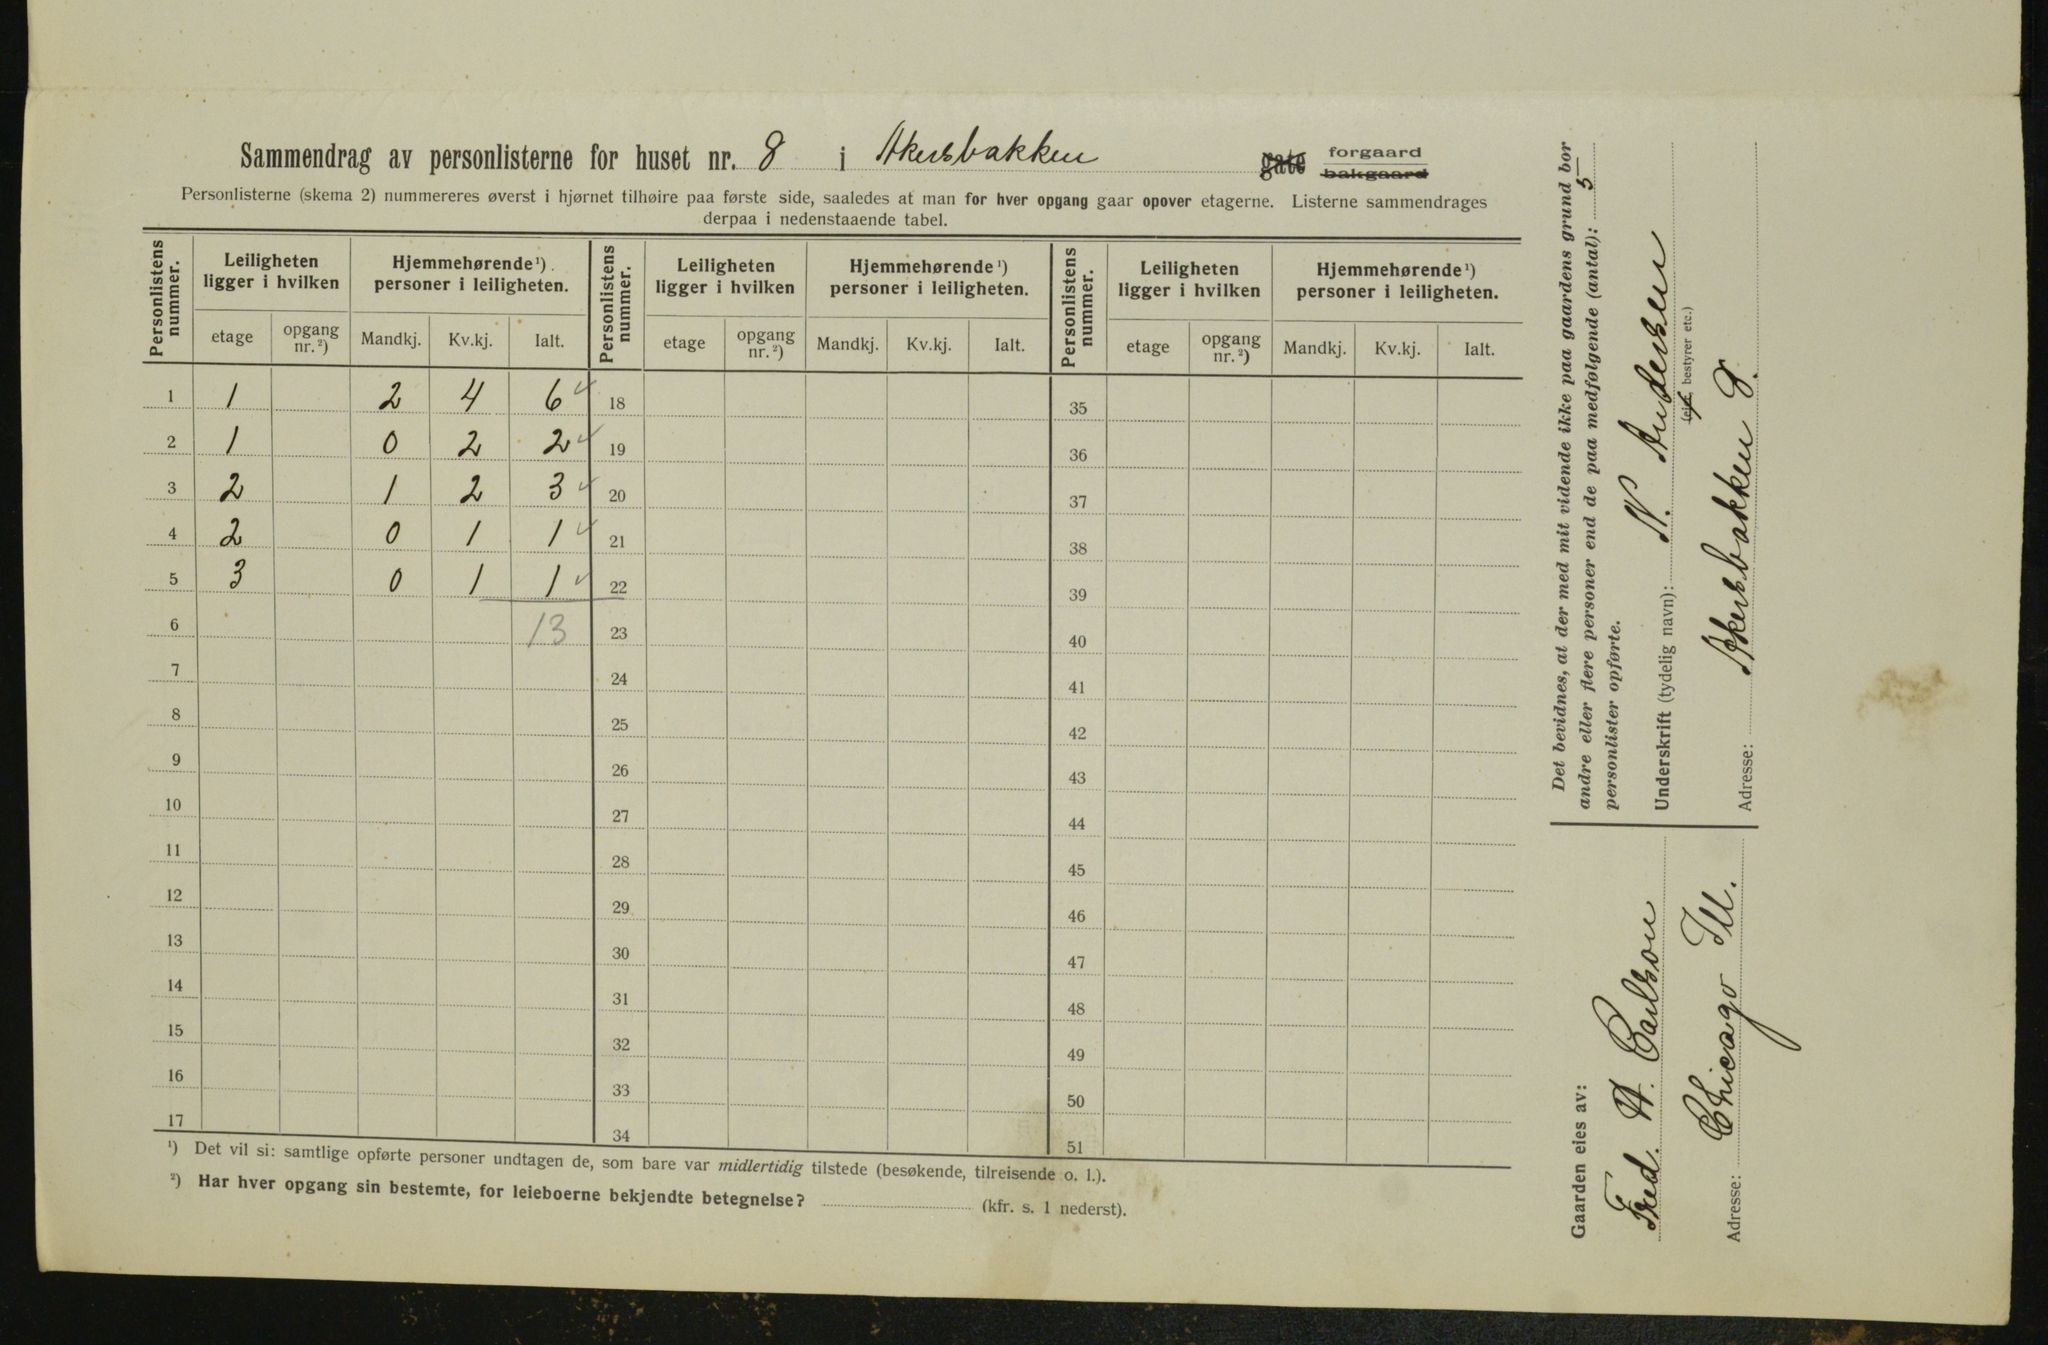 Sammendrag av personlisterne for huset nr. 8 i Akersbakken gate forgaard
bakgaard
Personlisterne (skema 2) nummereres øverst i hjørnet tilhøire paa første side, saaledes at man for hver opgang gaar opover etagerne. Listerne sammendrages
derpaa i nedenstaaende tabel.
Personlistens nummer. Leiligheten ligger i hvilken Hjemmehørende ¹) personer i leiligheten. Personlistens nummer. Leiligheten ligger i hvilken Hjemmehørende ¹) personer i leiligheten. Personlistens nummer. Leiligheten ligger i hvilken Hjemmehørende ¹) personer i leiligheten.
etage opgang nr. ²) Mandkj. Kv.kj. Ialt. etage opgang nr. ²) Mandkj. Kv.kj. Ialt. etage opgang nr. ²) Mandkj. Kv.kj. Ialt.
1 1 2 4 6 ✓ 18 35
2 1 0 2 2 ✓ 19 36
3 2 1 2 3 ✓ 20 37
4 2 0 1 1 ✓ 21 38
5 3 0 1 1 ✓ 22 39
6 13 23 40
7 24 41
8 25 42
9 26 43
10 27 44
11 28 45
12 29 46
13 30 47
14 31 48
15 32 49
16 33 50
17 34 51
¹) Det vil si: samtlige opførte personer undtagen de, som bare var midlertidig tilstede (besøkende, tilreisende o. l.).
²) Har hver opgang sin bestemte, for leieboerne bekjendte betegnelse? (kfr. s. 1 nederst).
Det bevidnes, at der med mit vidende ikke paa gaardens grund bor
andre eller flere personer end de paa medfølgende (antal): 5
personlister opførte.
Underskrift (tydelig navn): N. Andersen
(eier, bestyrer etc.)
Adresse: Akersbakken 8.
Gaarden eies av:
Fred. A. Carlson
Adresse: Chicago Ill.